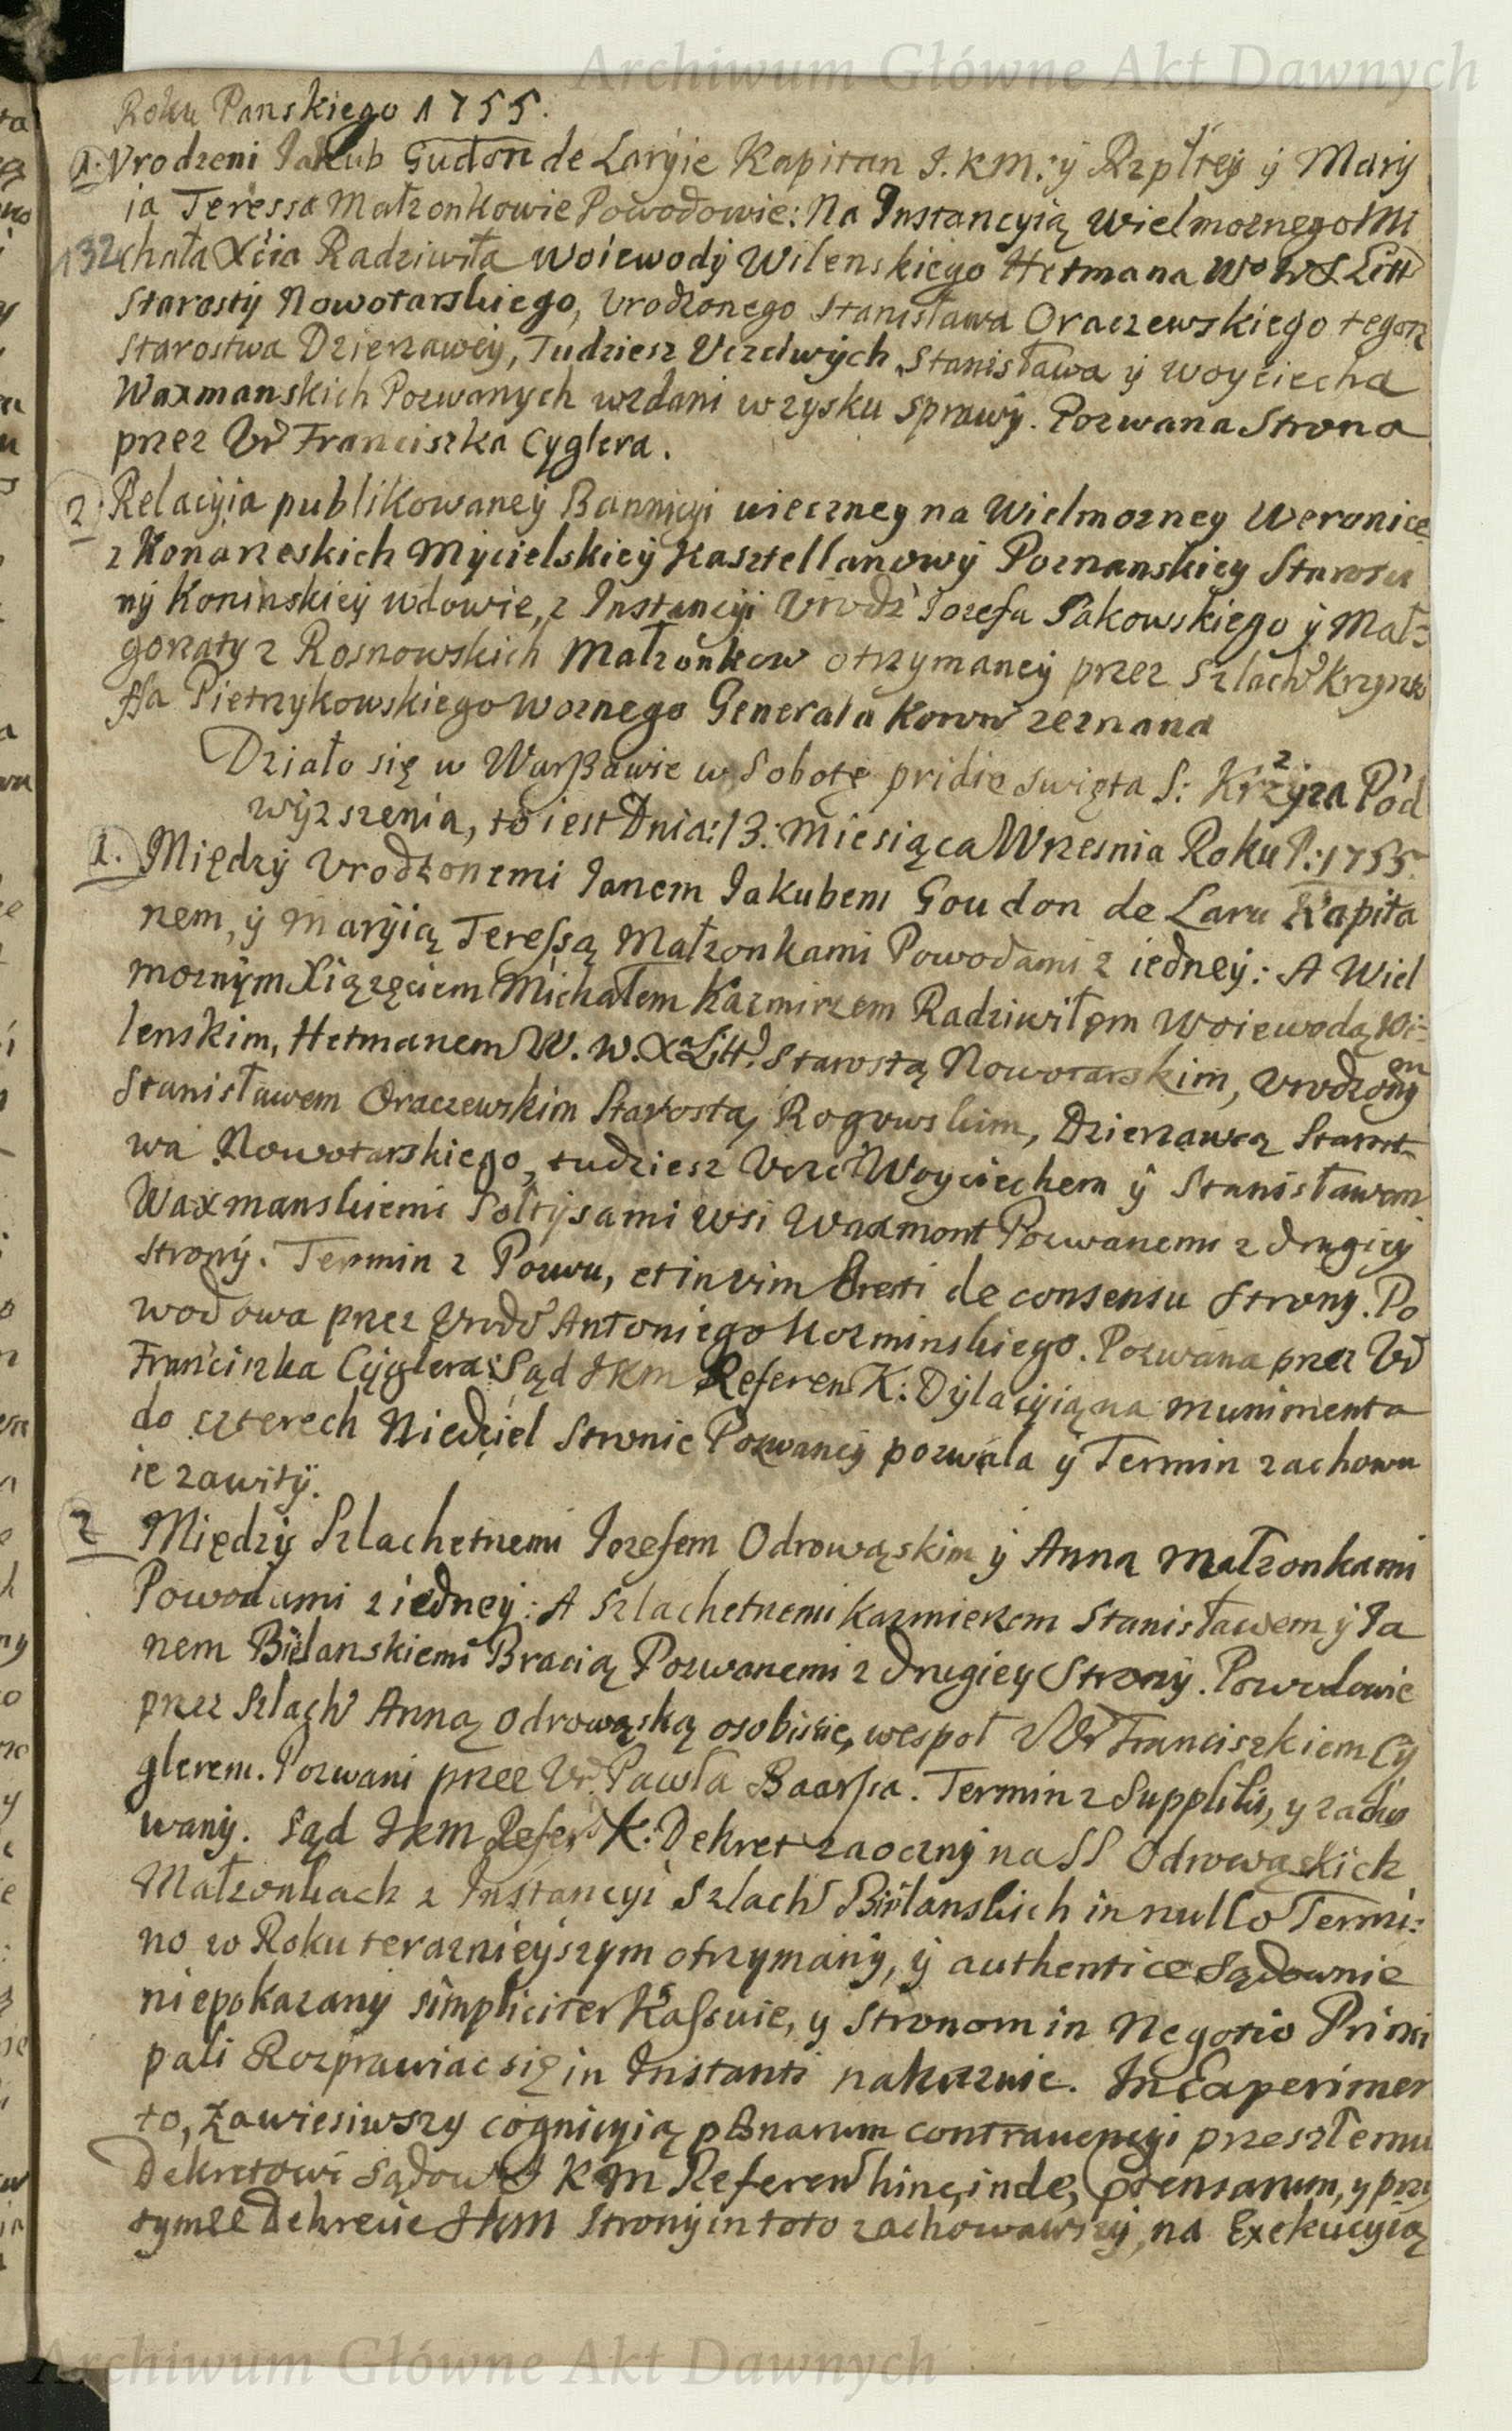 Archiwum Główne Akt Dawnych
Roku Panskiego 1755.
1. Vrodzeni Jakub Gudon de Laryie Kapitan J. K M: ÿ Rzpltey ÿ Marÿ
ia Teressa Małzonkowie Powodowie: Na Instancyią Wielmoznego Mi
132 chała Xcia Radziwiła Woiewodÿ Wilenskiego Hetmana W° W X Litt
Starostÿ Nowotarskiego, Vrodzonego Stanisława Oraczewskiego tegoz
Starostwa Dzierzawcÿ, Tudziesz Vczciwÿch Stanisława ÿ Woyciecha
Waxmanskich Pozwanych wzdani w zysku sprawÿ. Pozwana Strona
przez Vr Franciszka Cyglera.
2. Relacÿia publikowaneÿ Bannicyi wieczney na Wielmozney Weronice
z Konarzeskich Mycielskieÿ Kasztellanowÿ Poznanskiey Starosci
nÿ Koninskieÿ wdowie, z Instancÿi Vrodz Jozefa Pakowskiego ÿ Mał=
gorzaty z Rosnowskich Małzonkow otrzymaneÿ przez Szlach Krzysz
ffa Pietrzykowskiego Woznego Generała Koron zeznana
Działo się w Warszawie w Sobotę pridie swięta S: Krzÿza Pod
wÿzszenia, to iest Dnia: 13: Miesiąca Wrzesnia Roku P: 1755
1. Międzÿ Vrodzonemi Janem Jakubem Goudon de Laru Kapita
nem, ÿ Marÿią Teressą Małzonkami Powodami z iedneÿ: A Wiel
moznÿm Xiązęciem Michałem Kazmirzem Radziwiłem Woiewodą Wi=
lenskim, Hetmanem W. W. X Litt. Starostą Nowotarskim, Vrodzonyem
Stanisławem Oraczewskim Starostą Rogowskim, Dzierzawcą Starost
wa Nowotarskiego, tudziesz Vczc Woyciechem ÿ Stanisławem
Waxmanskiemi Soltÿsami wsi Waxmont Pozwanemi z drugieÿ
stronÿ. Termin z Pozwu, et in vim Aresti de consensu Strony. Po
wodowa przez Vrodz Antoniego Kozminskiego. Pozwana przez Vr
Franciszka Cÿglera: Sąd JKM Referen K: Dÿlacÿią na munimenta
do czterech Niedziel Stronie Pozwaneÿ pozwala ÿ Termin zachowu
ie zawitÿ.
2 Międzÿ Szlachetnemi Jozefem Odrowąskim ÿ Anną Małzonkami
Powodami z iedneÿ: A Szlachetnemi Kazmierzem Stanisławem ÿ Ja
nem Bielanskiemi Bracią Pozwanemi z drugiey Stronÿ. Powodowie
przez Szlach Anną Odrowąską osobiscie, wespoł z Vr Franciszkiem Cÿ
glerem. Pozwani przez Vr. Pawła Baarssa. Termin z Supplik, y zacho
wanÿ. Sąd JKM Refer K: Dekret zaocznÿ na SS Odrowąskich
Małzonkach z Instancyi Szlach Bielanskich in nullo Termi:
no w Roku teraznieÿszym otrzymanÿ, ÿ authentice sądownie
niepokazanÿ simpliciter Kassuie, y Stronom in Negotio Princi
pali Rozprawiac się in Instanti nakazuie. In Experimen
to, Zawiesiwszy cognicyią pænarum contravencyi przeszłemu
Dekretowi Sądow J K M Referen hinc, inde, prætensarum, y przy
tymze Dekrecie JKM Stronÿ in toto zachowawszÿ, na Exekucyią
Archiwum Główne Akt Dawnych